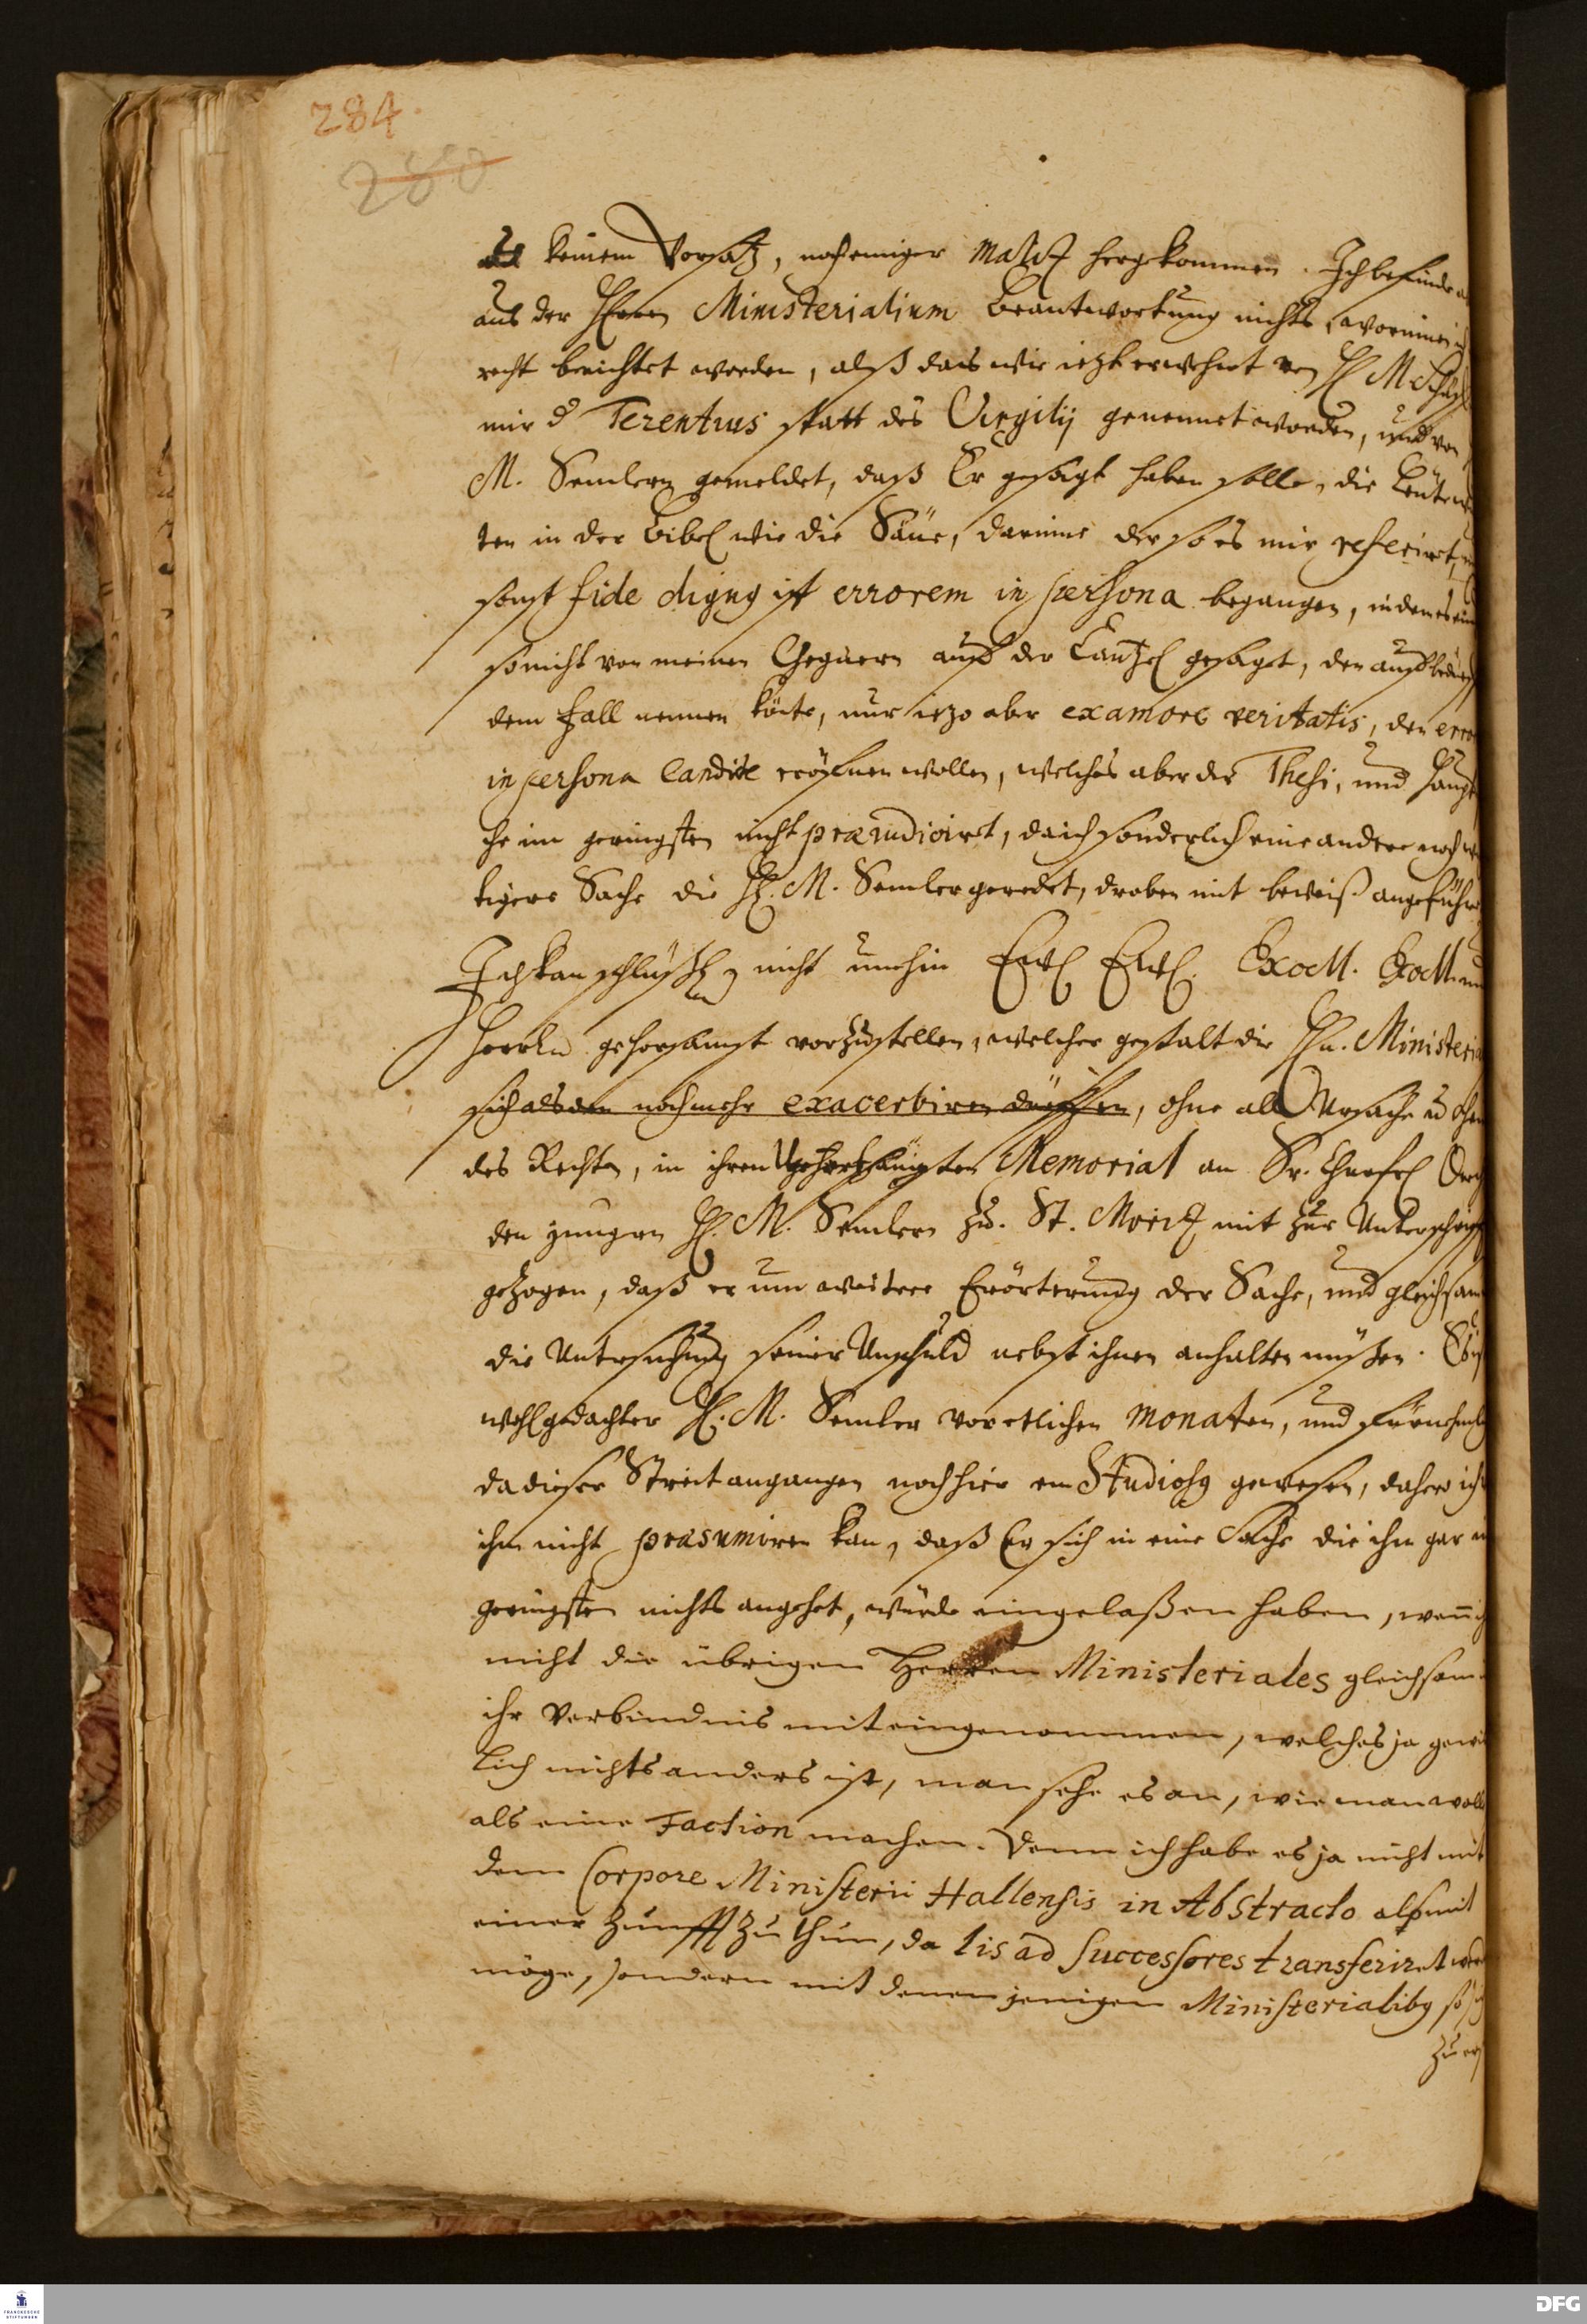 284.
280
keinem Vorsatz, noch einiger malitz hergekommen. Ich befinde
aus der Herren Ministerialium beantwortung nichts, worinnen
recht berichtet worden, alß das wie ietzt erwehnt von H. M.
mir d Terentius statt des Virgilij genennet worden, und von
M. Semlern gemeldet, daß Er gesagt haben solle, die Leute
ten in der Bibel wie die Säue, darinne der so es mir referirt,
sonst fide dignus ist errorem in persona begangen, indem es
so nicht von meinen Gegnern auff der Cantzel gesaget, den auff
dem fall nennen könte, nur ietzo aber ex amore veritatis, den
in persona candide eröffnen wollen, welches aber der Thesi, und
che im geringsten nicht præiudicirt, da ich sonderlich eine andere noch
tigere Sache die H. M. Semler geredet, droben mit beweiß angeführt
Ich kan schlüßl. nicht umhin Excell. Excell.
Herrln gehorsamst vorzustellen, welcher gestalt die Hn. Ministeria
sich alsdan noch mehr exacerbiren dürfften, ohne all Ursache u
des Rechten, in ihren Memorial an Sr. Churfl
den jungen H. M. Semlern zu St. Moritz mit zur Unterschrifft
gezogen, daß er um weitere Erörterung der Sache, und gleichsam
die Untersuchung seiner Unschuld nebst ihnen anhalten müßen.
wohlgedachter H. M. Semler vor etlichen monaten, und
da dieser Streit angangen noch hier ein Studiosus gewesen, daher ich
ihm nicht præsumiren kan, daß Er sich in eine Sache die ihn gar
geringsten nichts angehet, würde eingelaßen haben, wenn
nicht die übrigen Herren Ministeriales gleichsam
ihr Verbindnis mit eingenommen, welches ja
lich nichts anders ist, man sehe es an, wie man wolle
als eine Faction machen. Denn ich habe es ja nicht mit
dem Corpore Ministerii Hallensis in Abstracto alß mit
einer Zunfft zu thun, da lis ad Successores transferiret
möge, sondern mit denen jenigen Ministerialibus so
zu
FRANCKESCHE STIFTUNGEN
DFG